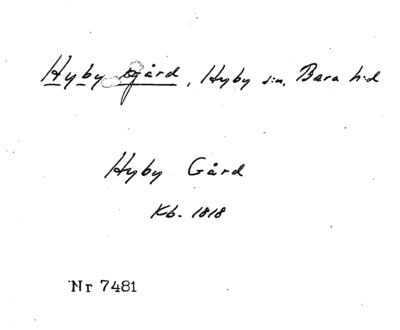 Hyby gård, Hyby s:n, Bara h:d
Hyby Gård
Kb. 1818
Nr 7481